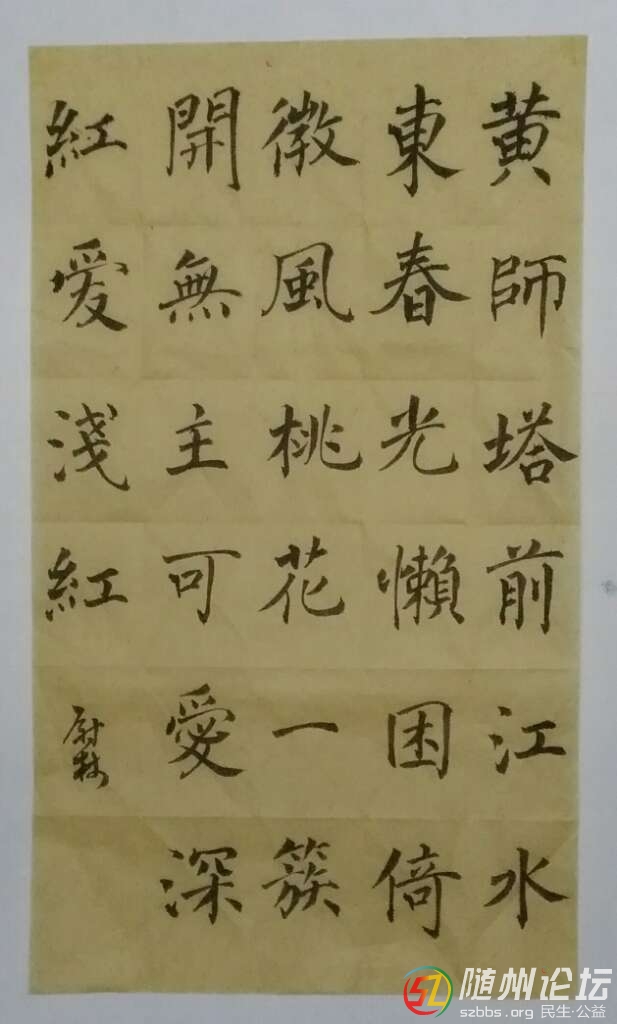 黄師塔前江水
東春光懶困倚
微風桃花一簇
開無主可愛深
紅愛淺紅
随州论坛
szbbs.org 民生·公益